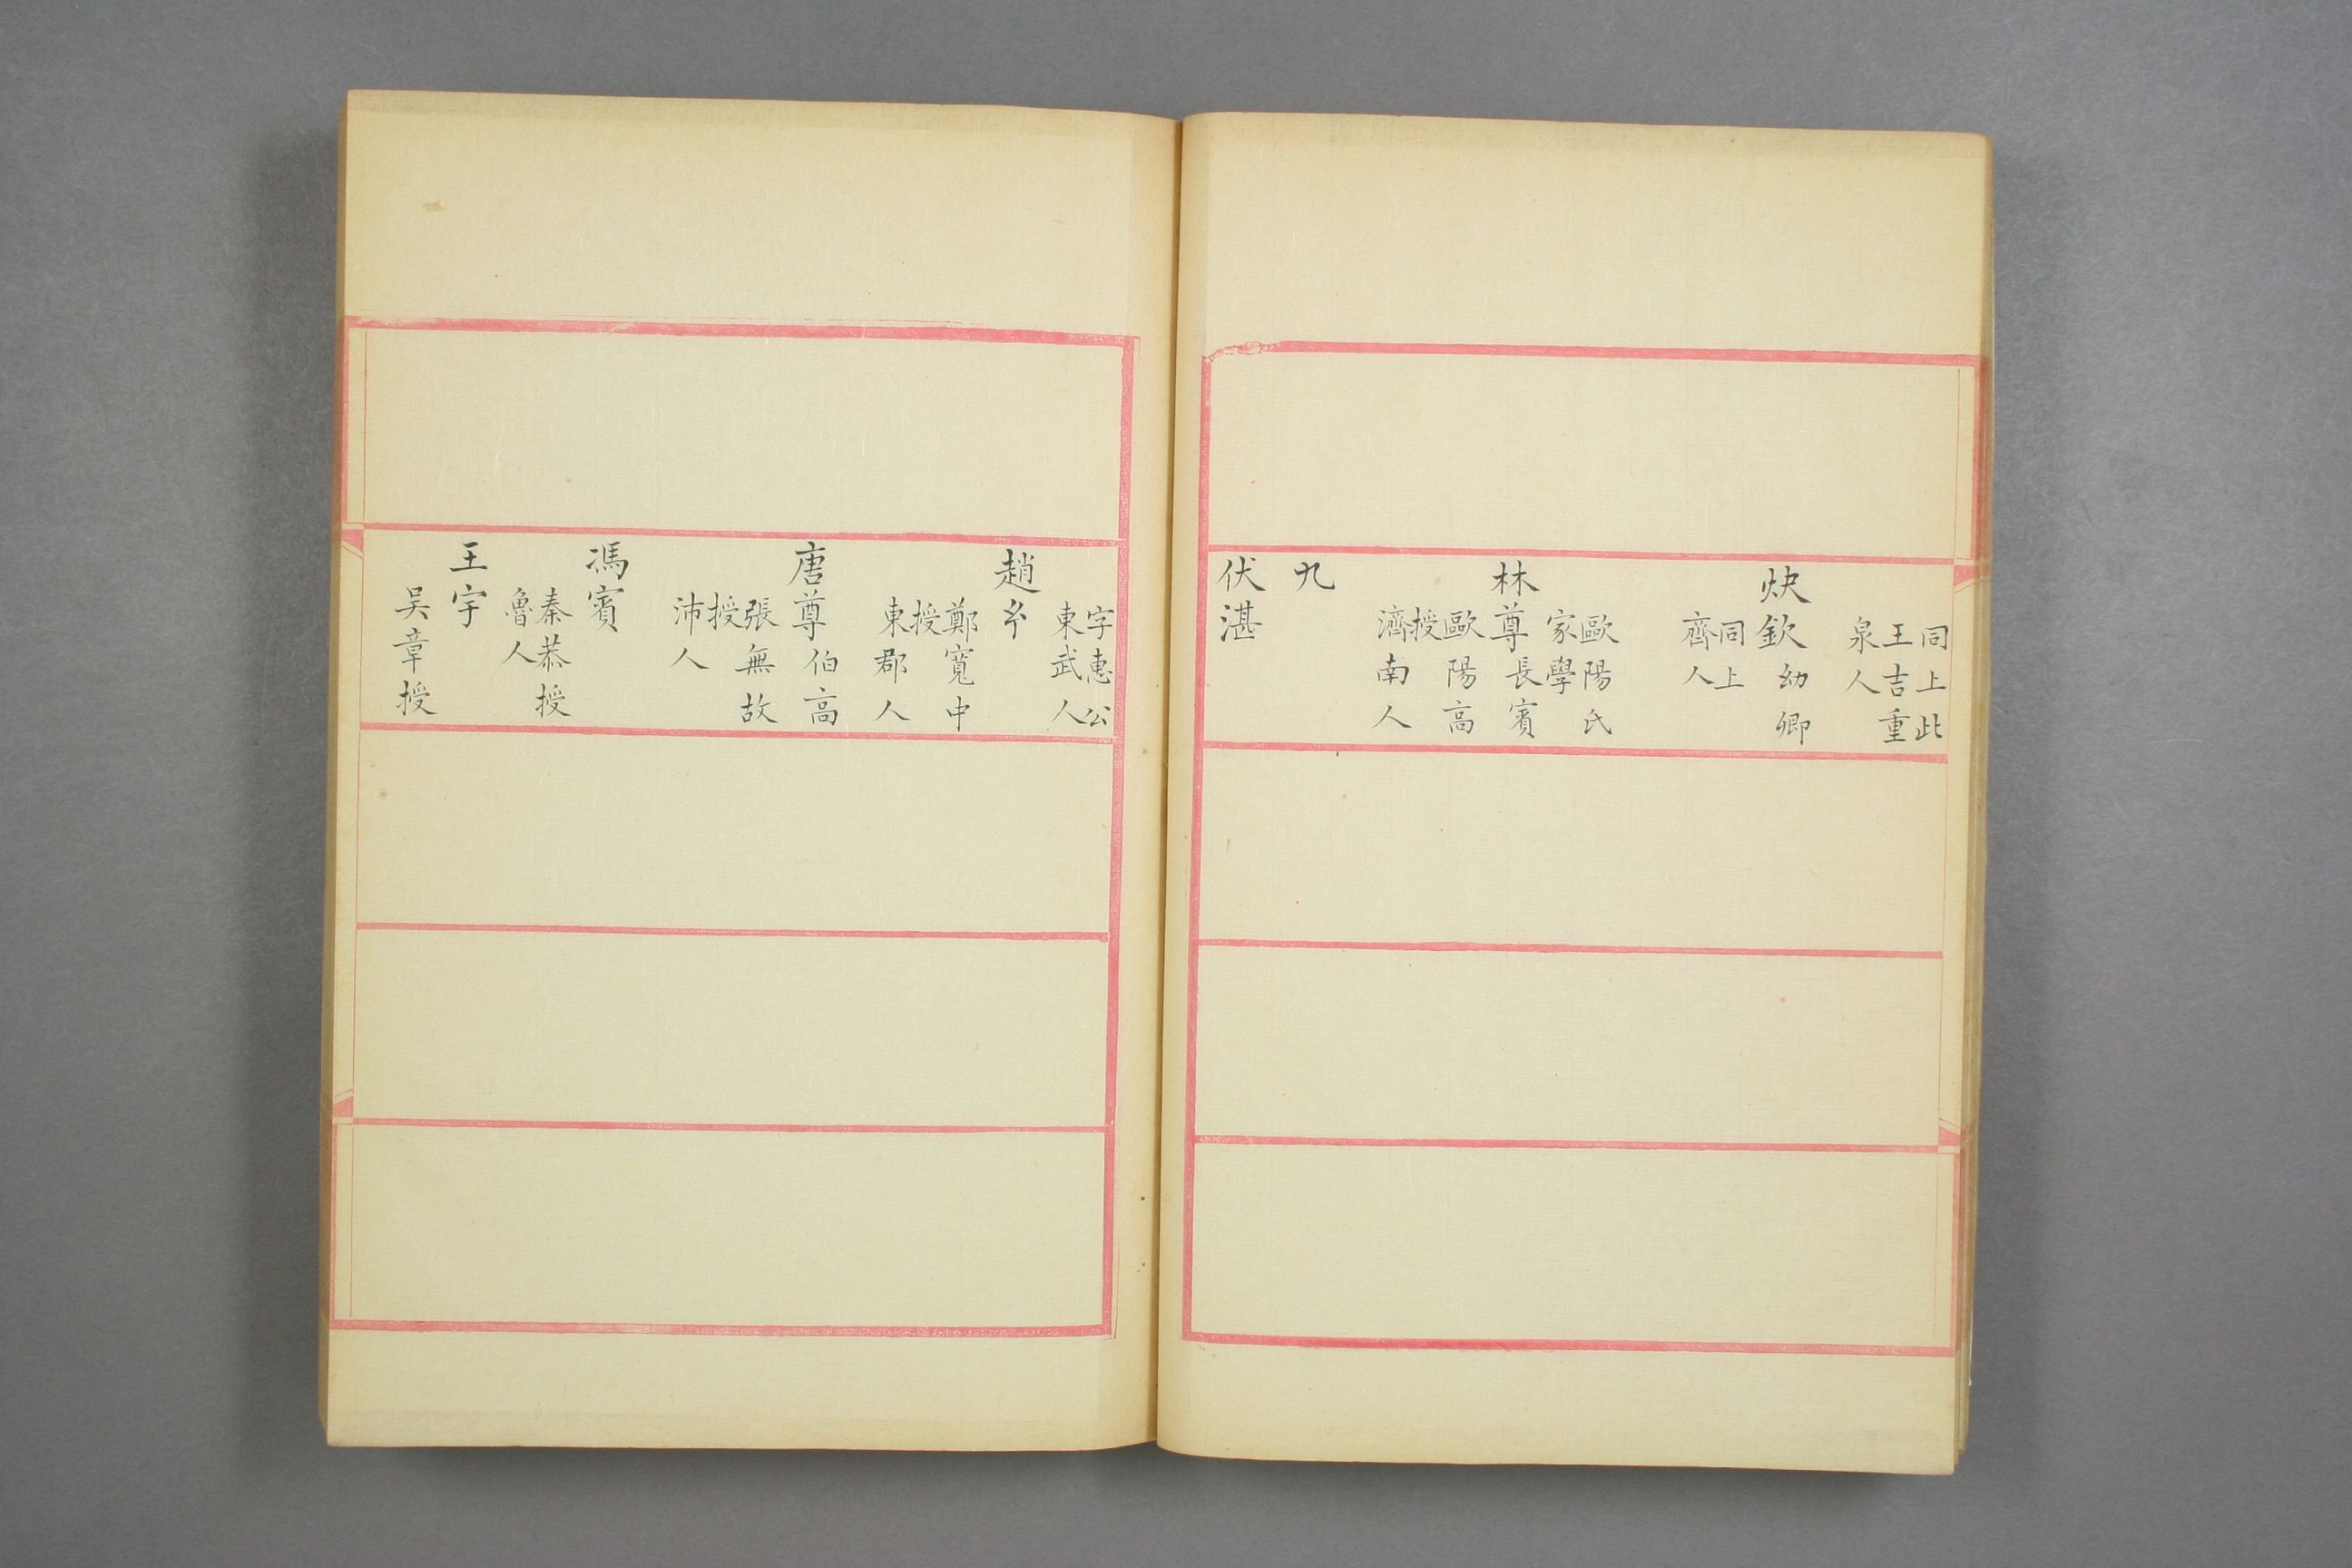 同上此
王吉重
泉人
炔欽幼卿
同上
齊人
歐陽氏
家學
林尊長賓
歐陽高
授
濟南人
九
伏湛
字惠公
東武人
趙
鄭寬中
授
東郡人
唐尊伯高
張無故
授
沛人
馮賓
秦恭授
魯人
王宇
吴章授